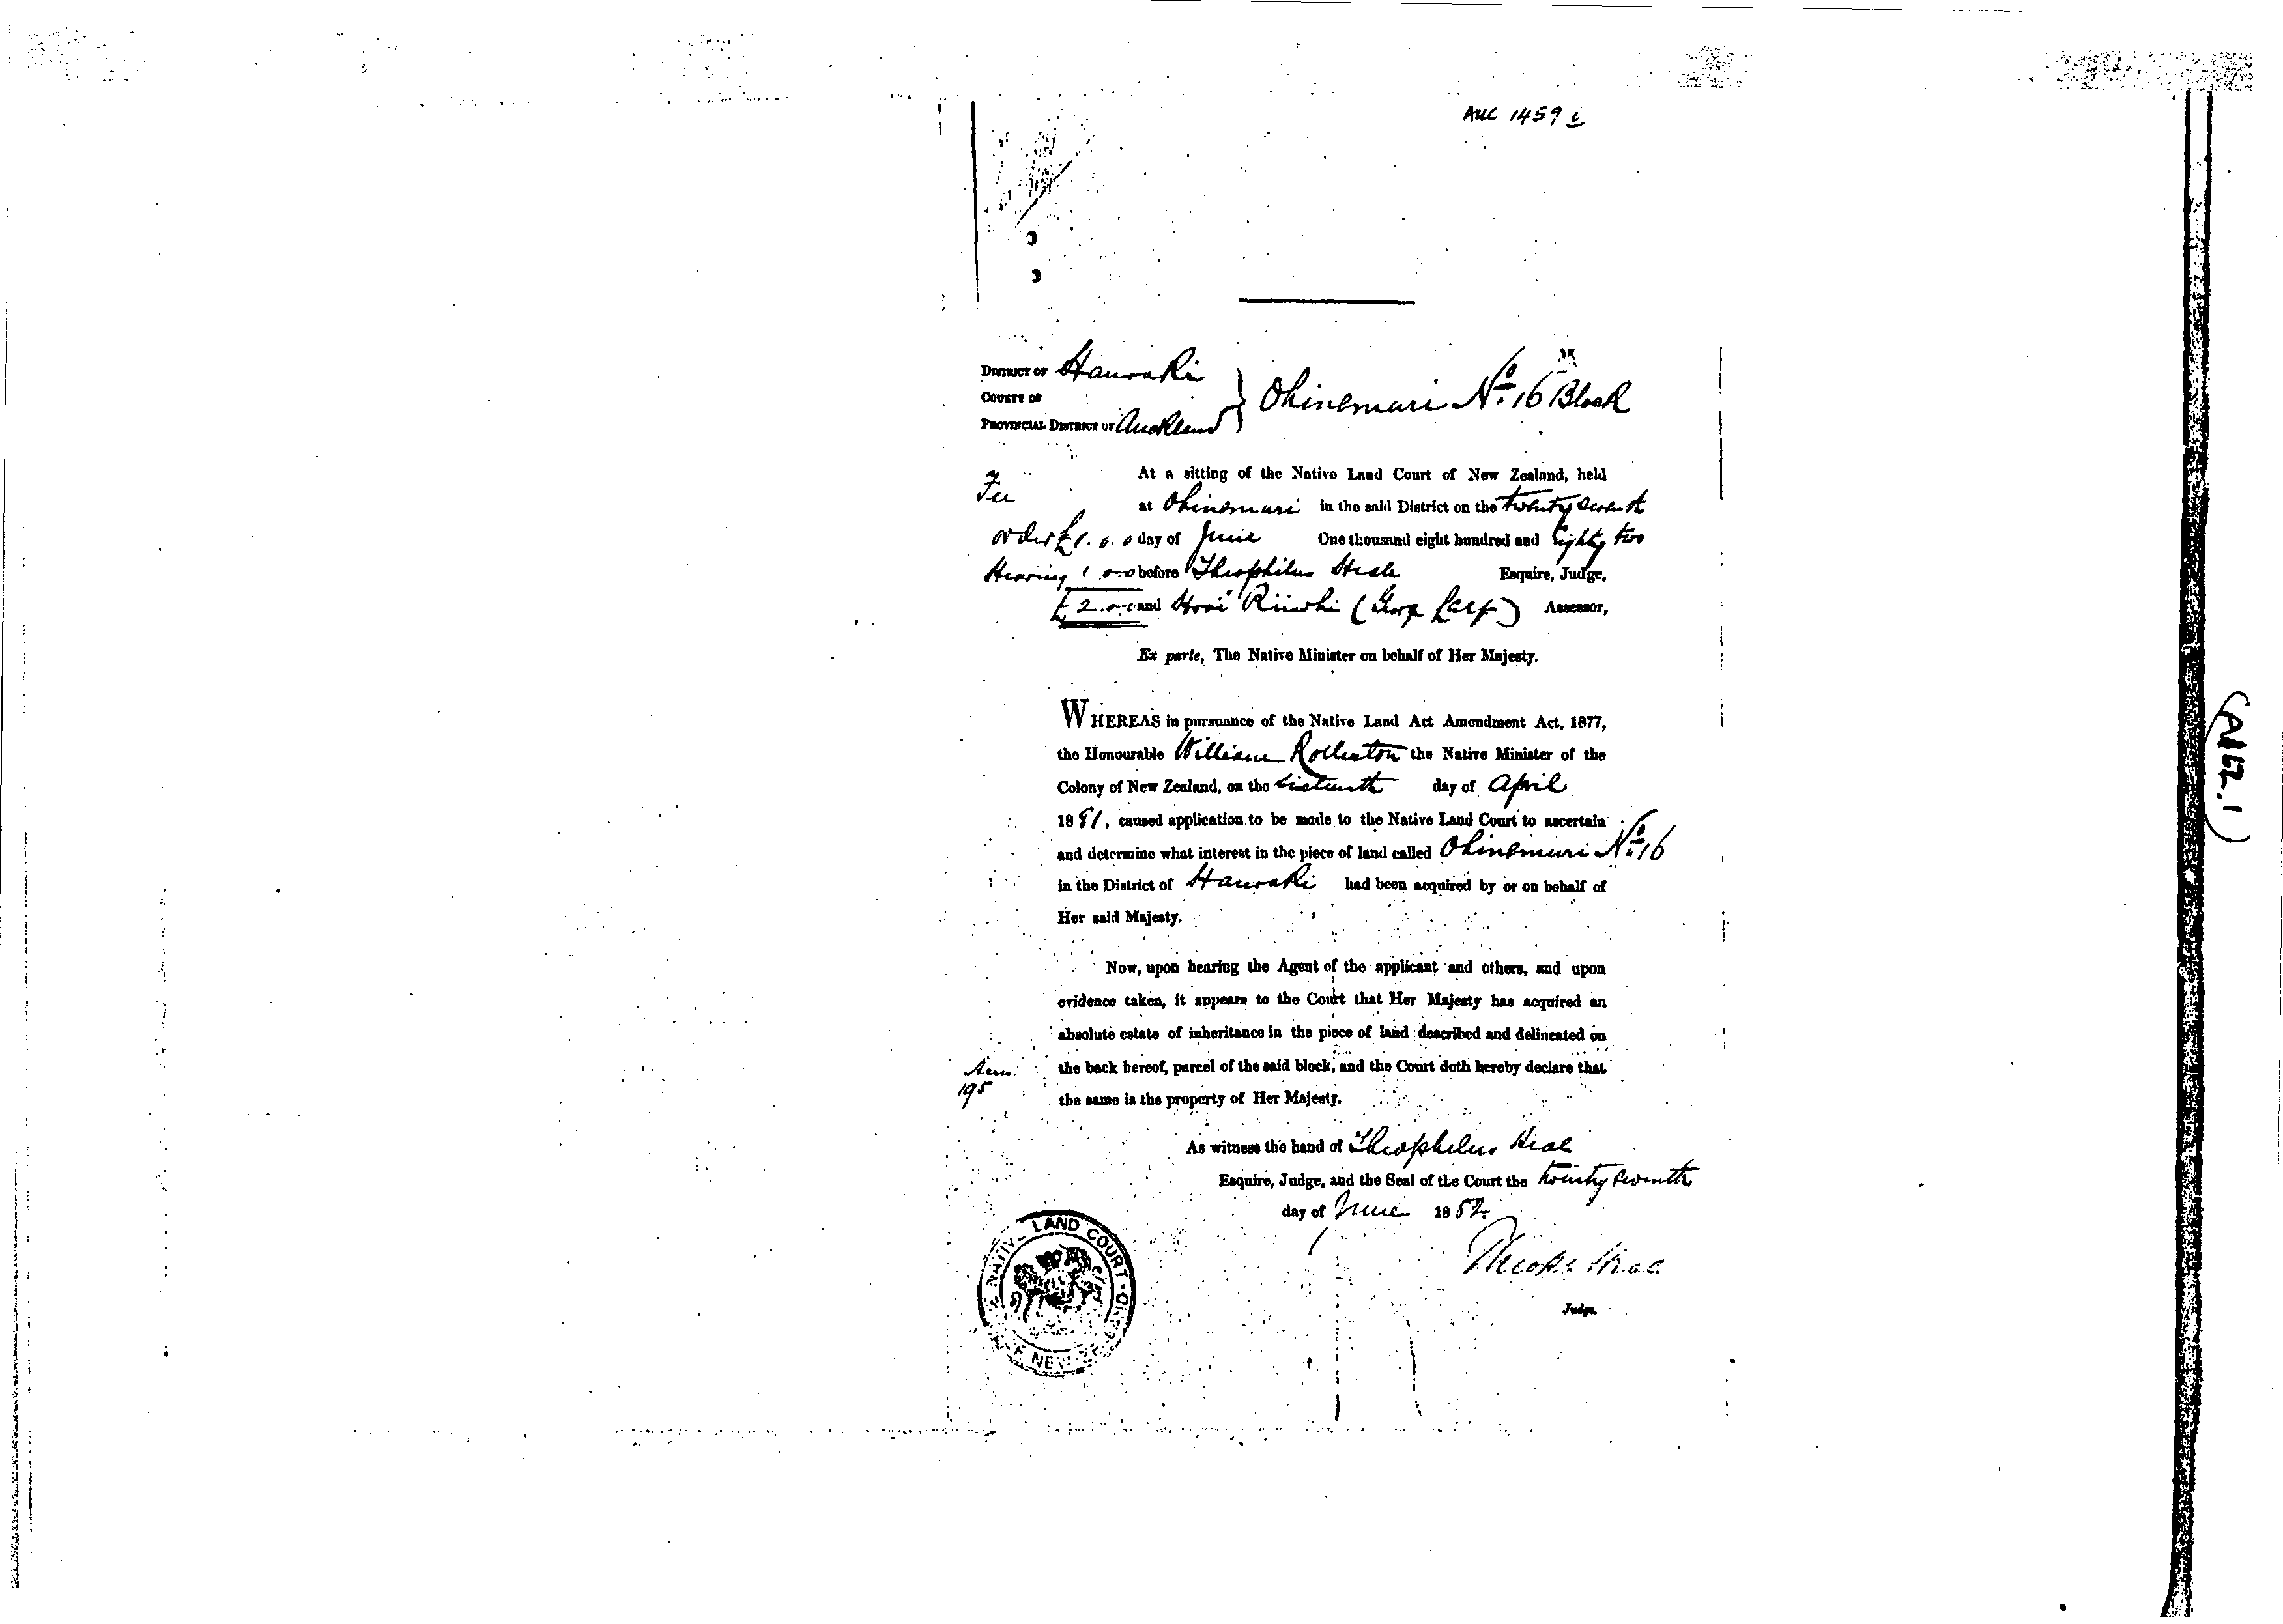 AUC 1459
DISTRICT OF Hauraki
COUNTY OF
PROVINCIAL DISTRICT OF Auckland
Ohinemuri No. 16 Block
At a sitting of the Native Land Court of New Zealand, held
Fee
at Ohinemuri in the said District on the twenty seventh
order £1.0.0 day of June One thousand eight hundred and Eighty two
Hearing 1.0.0 before Theophilus Heale Esquire, Judge,
£2.0.0 and Assessor,
Ex parte, The Native Minister on behalf of Her Majesty.
WHEREAS in pursuance of the Native Land Act Amendment Act, 1877,
the Honourable William Rolleston the Native Minister of the
Colony of New Zealand, on the sixteenth day of April
1881, caused application to be made to the Native Land Court to ascertain
and determine what interest in the piece of land called Ohinemuri No. 16
in the District of Hauraki had been acquired by or on behalf of
Her said Majesty.
Now, upon hearing the Agent of the applicant and others, and upon
evidence taken, it appears to the Court that Her Majesty has acquired an
absolute estate of inheritance in the piece of land described and delineated on
the back hereof, parcel of the said block, and the Court doth hereby declare that
195
the same is the property of Her Majesty.
As witness the hand of Theophilus Heale
Esquire, Judge, and the Seal of the Court the twenty seventh
day of June 1882.
Judge.
NATIVE LAND COURT OF NEW ZEALAND
(A112.1)